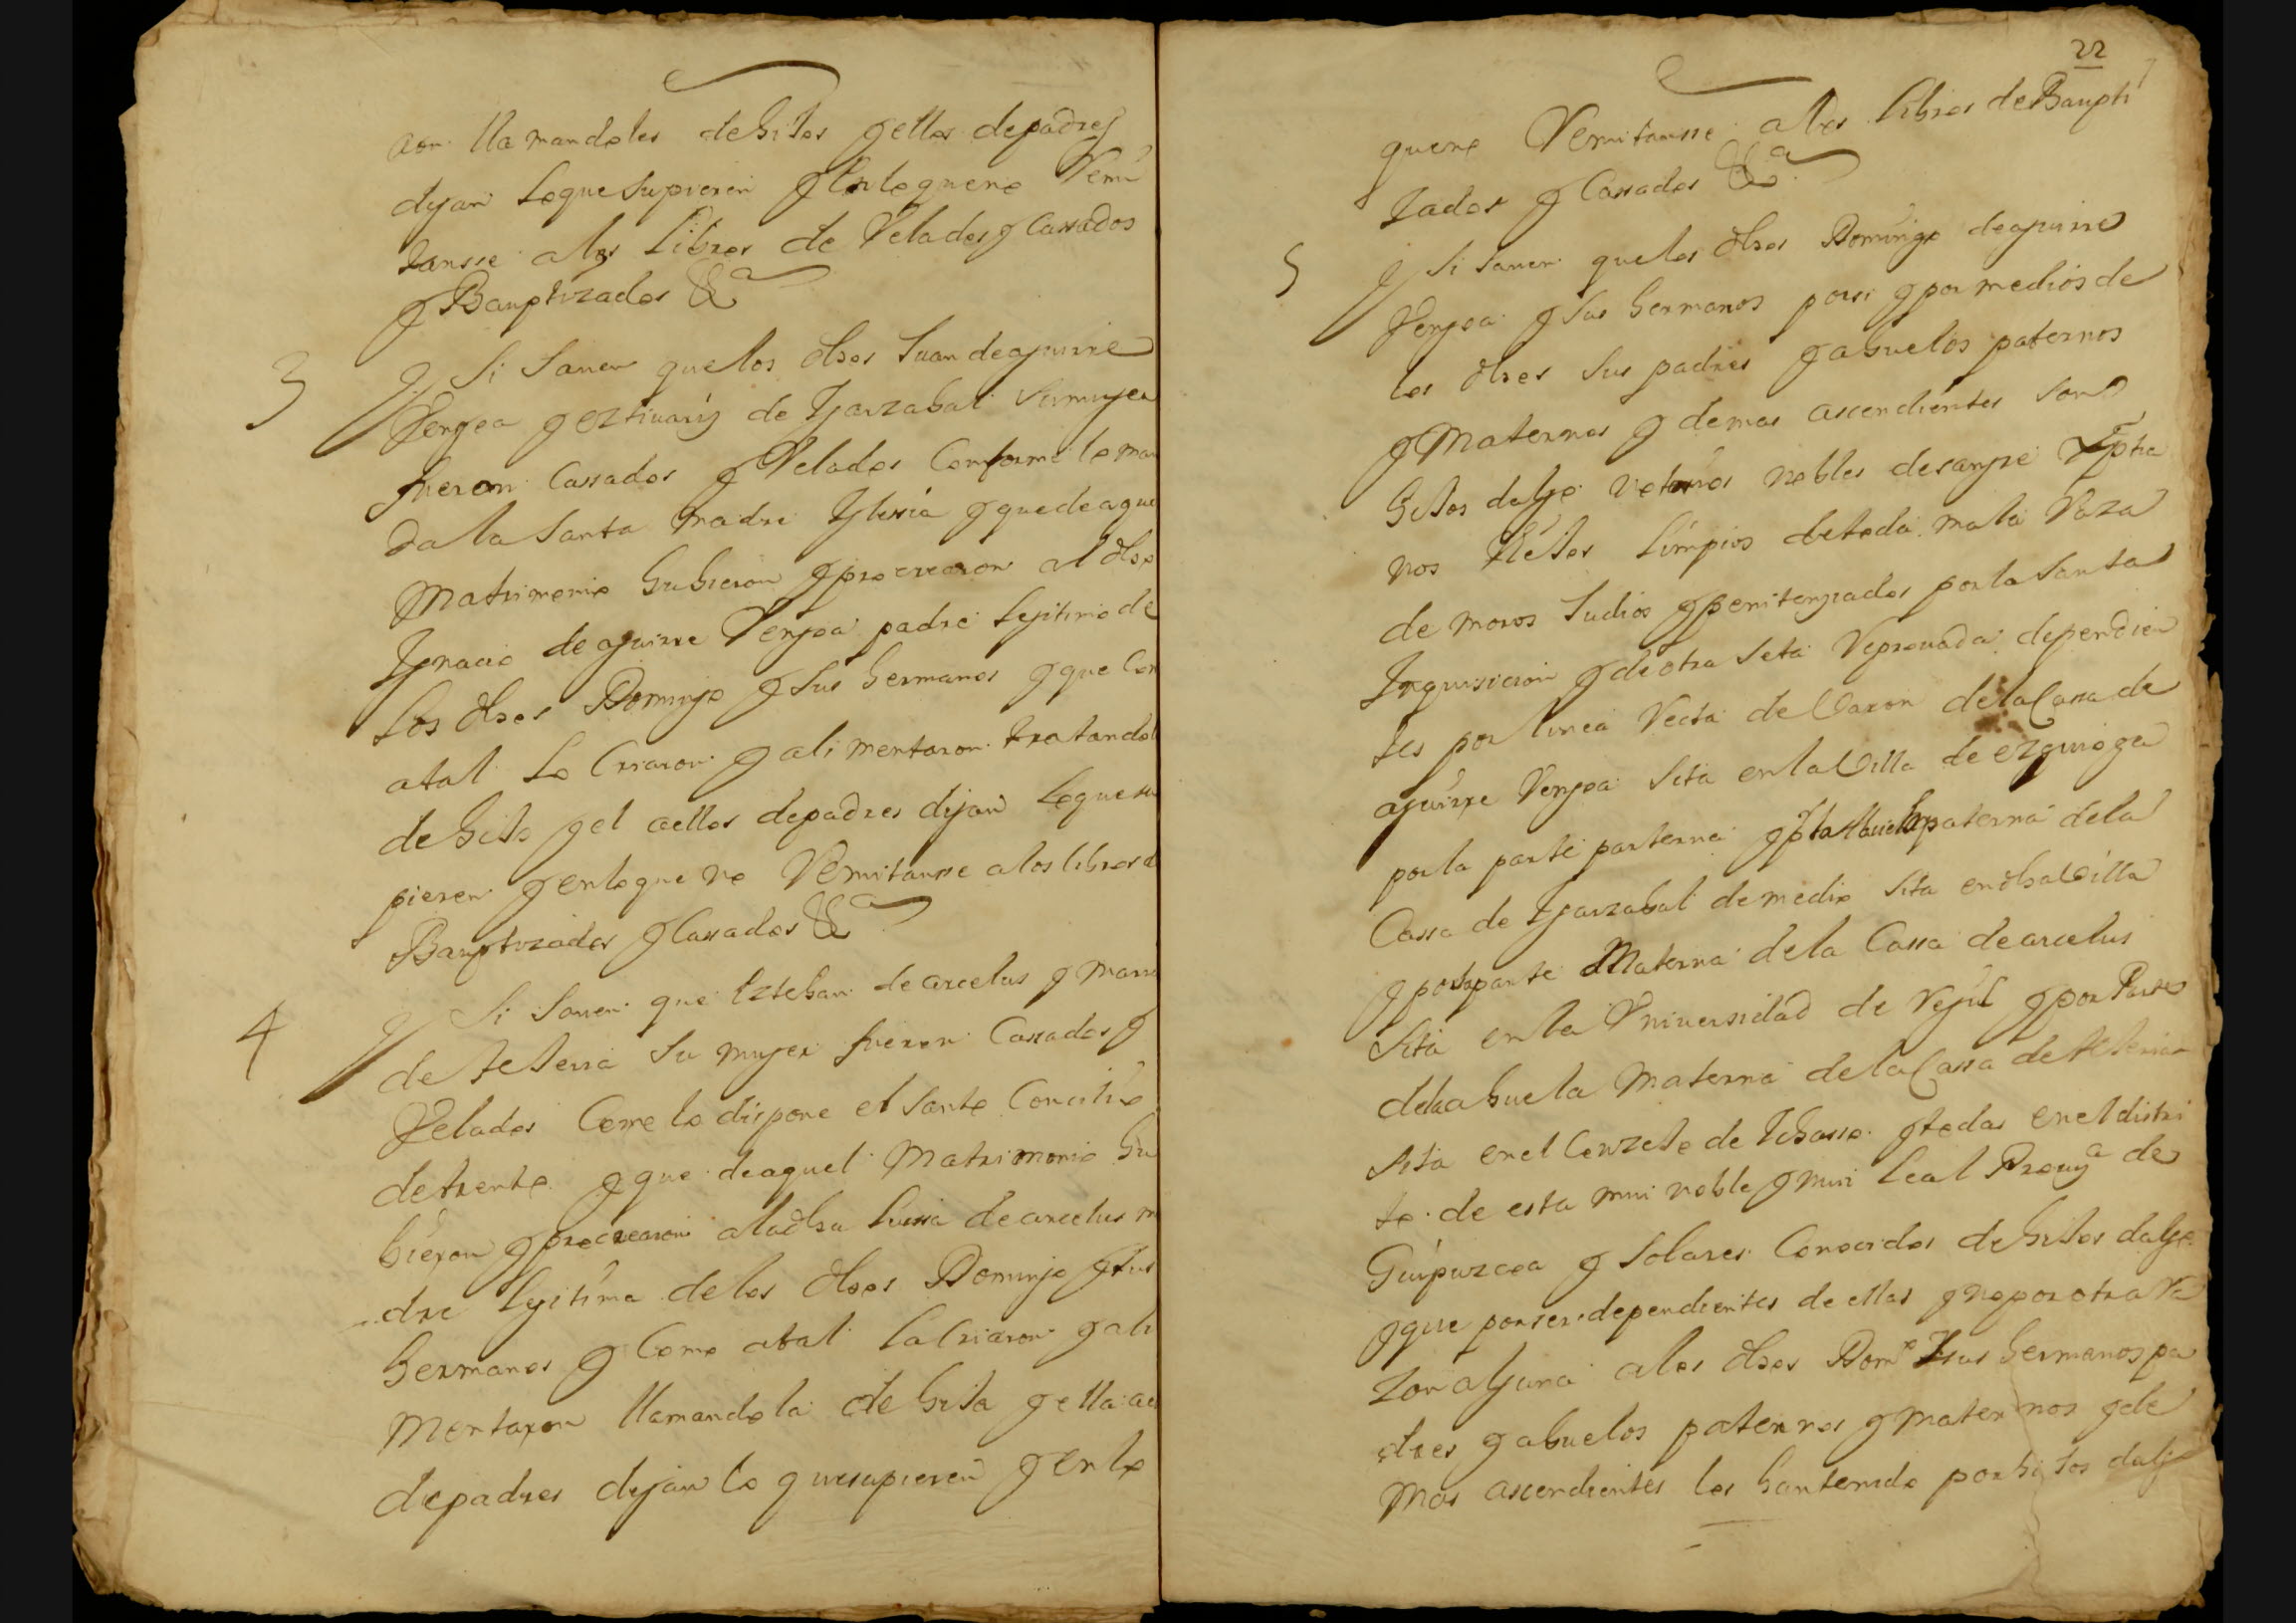 aron llamandoles de hijos y ellos de padres
digan lo que supieren y en lo que no Remi
tansse a los Libros de Velados y Cassados
y Bauptizados &a
3 Yt Si Saven que los dhos Juan de aguirre
Vengoa y eztivariz de Ygarzabal su muger
fueron Cassados y Velados Conforme lo man
da la Santa madre Iglessia y que de aquel
Matrimonio hubieron y procrearon al dho
Ignacio de aguirre Vengoa padre legitimo de
los dhos Domingo y sus hermanos y que Com
a tal lo Criaron y alimentaron tratandol
de hijo y el a ellos de padres digan lo que su
pieren y en lo que no Remitansse a los libros d
Bauptizados y Cassados &a
4 Yt Si Saven que Esteban de arcelus y Mari
de teleria su muger fueron Cassados y
Velados Como lo dispone el Santo Concilio
de trento y que de aquel Matrimonio hu
bieron y procrearon a la dha Luissa de arcelus m
dre legitima de los dhos Domingo y sus
hermanos y Como a tal la Criaron y ali
mentaron llamandola de hija y ella a e
de padres digan lo que supieren y en lo
22
que no Remitansse a los libros de Baupti
zados y Cassados &a
5 Yt Si Saven que los dhos Domingo de aguirre
Vengoa y Sus hermanos por si y por medios de
los dhos Sus padres y abuelos paternos
y Maternos y demas ascendientes son
hijos dalgo notorios nobles de sangre Xptia
nos viejos limpios de toda mala Raza
de moros Judios y penitenziados por la Santa
Inquisicion y de otra Seta Reprouada dependien
tes por linea Recta de Varon de la Cassa de
aguirre Vengoa Sita en la Villa de ezquioga
por la parte parterna y pr la Abuela paterna de la
Cassa de Ygarzabal de medio Sita en dha Villa
y por la parte Materna de la Cassa de arcelus
Sita en la Vniversidad de Regil y por Parte
de la abuela Materna de la Cassa de teleria
sita en el Conzejo de Ichasso y todas en el distri
to de esta mui noble y mui leal Prouya de
Guipuzcoa y Solares Conocidos de hijos dalgo
y que por ser dependientes de ellas y no por otra Ra
zon alguna a los dhos Domo y sus hermanos pa
dres y abuelos paternos y maternos y de
mas ascendientes los han tenido por hijos dalgo